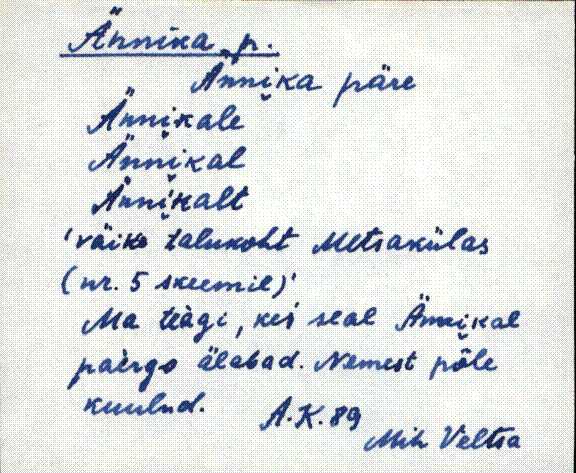 Ännika p.
Ännika päre
Ännikale
Ännikal
Ännikalt
'väike talukoht Metsakülas
(nr. 5 skeemil)'
Ma teagi, kes seal Ännikal
paergo älabad. Nemest põle
kuulnd. A.K. 89
Mih Veltsa